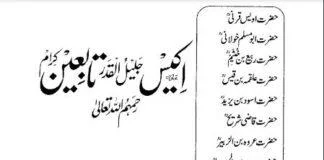 اکیس جلیل القدر تابعین کرام
رحمہم اللہ تعالیٰ
حضرت اویس قرنیؒ
حضرت ابو مسلم خولانیؒ
حضرت ربیع بن خثیمؒ
حضرت علقمہ بن قیسؒ
حضرت اسود بن یزیدؒ
حضرت قاضی شریحؒ
حضرت عروہ بن الزبیرؒ